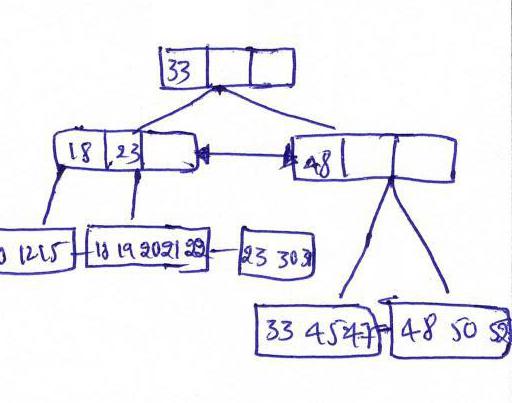 33
18 23
48
12 15
18 19 20 21 22
23 30 31
33 45 47
48 50 52